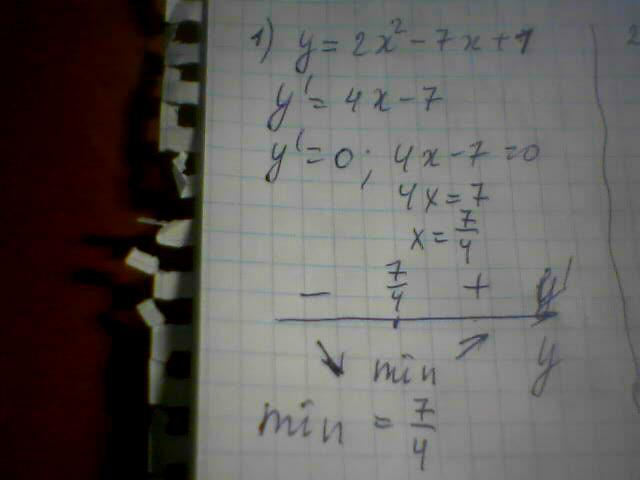 1) y = 2x² - 7x + 1
y' = 4x - 7
y' = 0; 4x - 7 = 0
4x = 7
x = 7/4
- 7/4 + y'
min y
min = 7/4